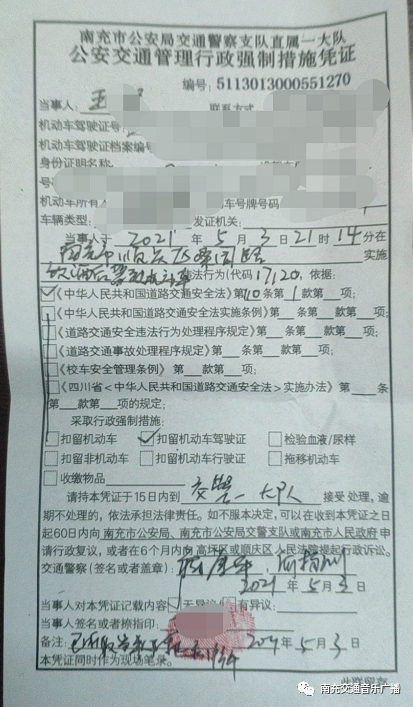 南充市公安局交通警察支队直属一大队
公安交通管理行政强制措施凭证
编号: 5113013000551270
当事人: 王 联系方式
机动车驾驶证号:
机动车驾驶证档案编号
身份证明名称
号
机动车所有人 车号牌号码
车辆类型: 发证机关:
当事人于 2021 年 5 月 3 日 21 时 14 分在
南充市顺庆区 实施
饮酒后驾驶机动车 违法行为(代码 17120. 依据:
《中华人民共和国道路交通安全法》第 110 条第 1 款第 项;
《中华人民共和国道路交通安全法实施条例》第 条第 款第 项;
《道路交通安全违法行为处理程序规定》第 条第 款第 项;
《道路交通事故处理程序规定》第 条第 款第 项;
《校车安全管理条例》第 条第 款第 项;
《四川省<中华人民共和国道路交通安全法>实施办法》第 条
第 款第 项的规定;
采取行政强制措施:
扣留机动车 扣留机动车驾驶证 检验血液/尿样
扣留非机动车 扣留机动车行驶证 拖移机动车
收缴物品
请持本凭证于15日内到 交警一大队 接受处理,逾
期不处理的,依法承担法律责任。如不服本决定,可以在收到本凭证之日
起60日内向南充市公安局、南充市公安局交警支队或南充市人民政府申
请行政复议,或者在6个月内向高坪区或顺庆区人民法院提起行政诉讼。
交通警察(签名或者盖章):
2021 年 5 月 3 日
当事人对本凭证记载内容 无异议 有异议:
当事人签名或者捺指印:
备注: 2021 年 5 月 3 日
本凭证同时作为现场笔录。
此联留存
南充交通音乐广播